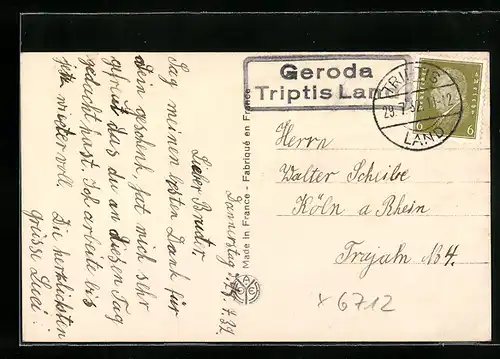 Geroda
Triptis Land
TRIPTIS
29.7.3 11-12
LAND
6 6
Herrn
Walter Scheibe
Köln a Rhein
Trajan
x 6712
Made in France - Fabriqué en France
Donnerstag 7.32
Lieber Bruder,
Sag meinen besten Dank für
Dein geschenk, hat mich sehr
gefreut das du an diesen Tag
gedacht hast. Ich arbeite bis
jetzt wieder voll. Die herzlichsten
grüsse Luci!